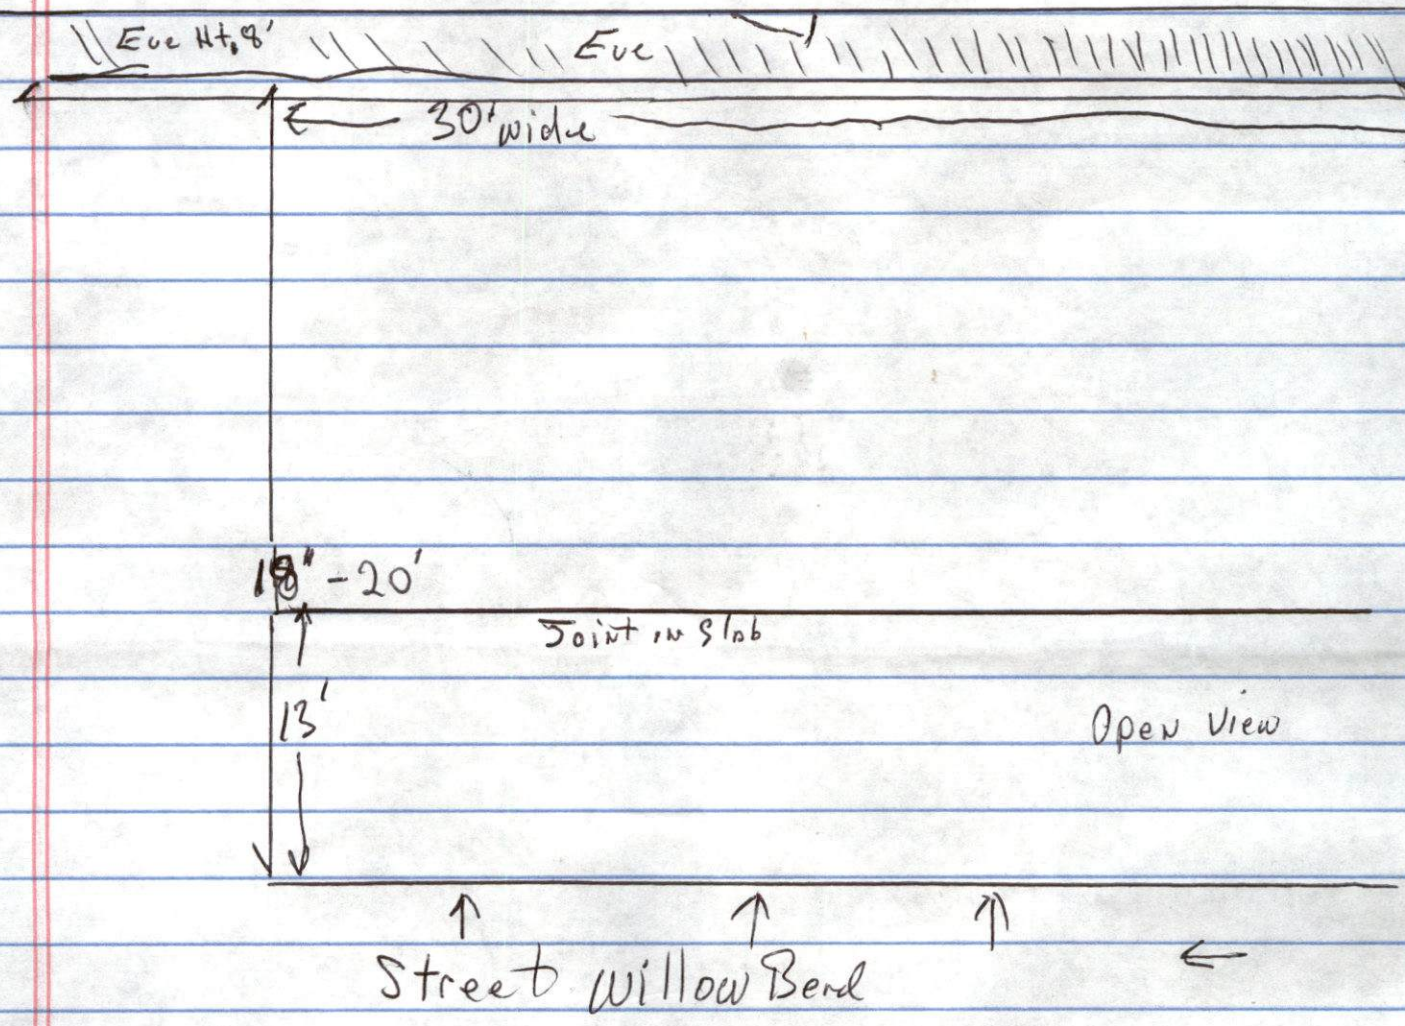 Eve Ht. 8'
Eve
30' wide
18" - 20'
Joint in Slab
13'
Open View
Street Willow Bend